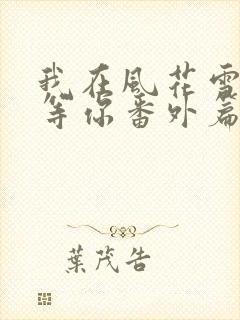 我在風花雪
等你番外篇
葉茂告